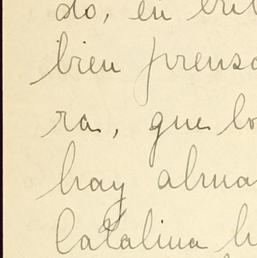 do, en bri
bien prensa
ra, que lo
hay alma
Catalina h